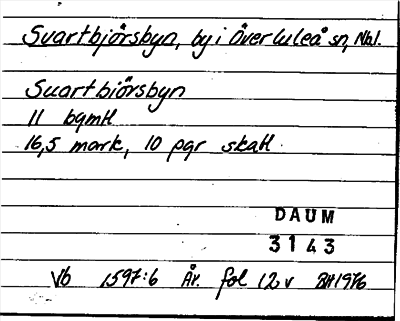 Svartbjörsbyn, by i Överluleå sn, Nbl.
Svartbjörsbyn
11 bqmtl
16,5 mark, 10 pqr skatt.
DAUM
3143
Vb 1597:6 År. fol 12v BH 1976